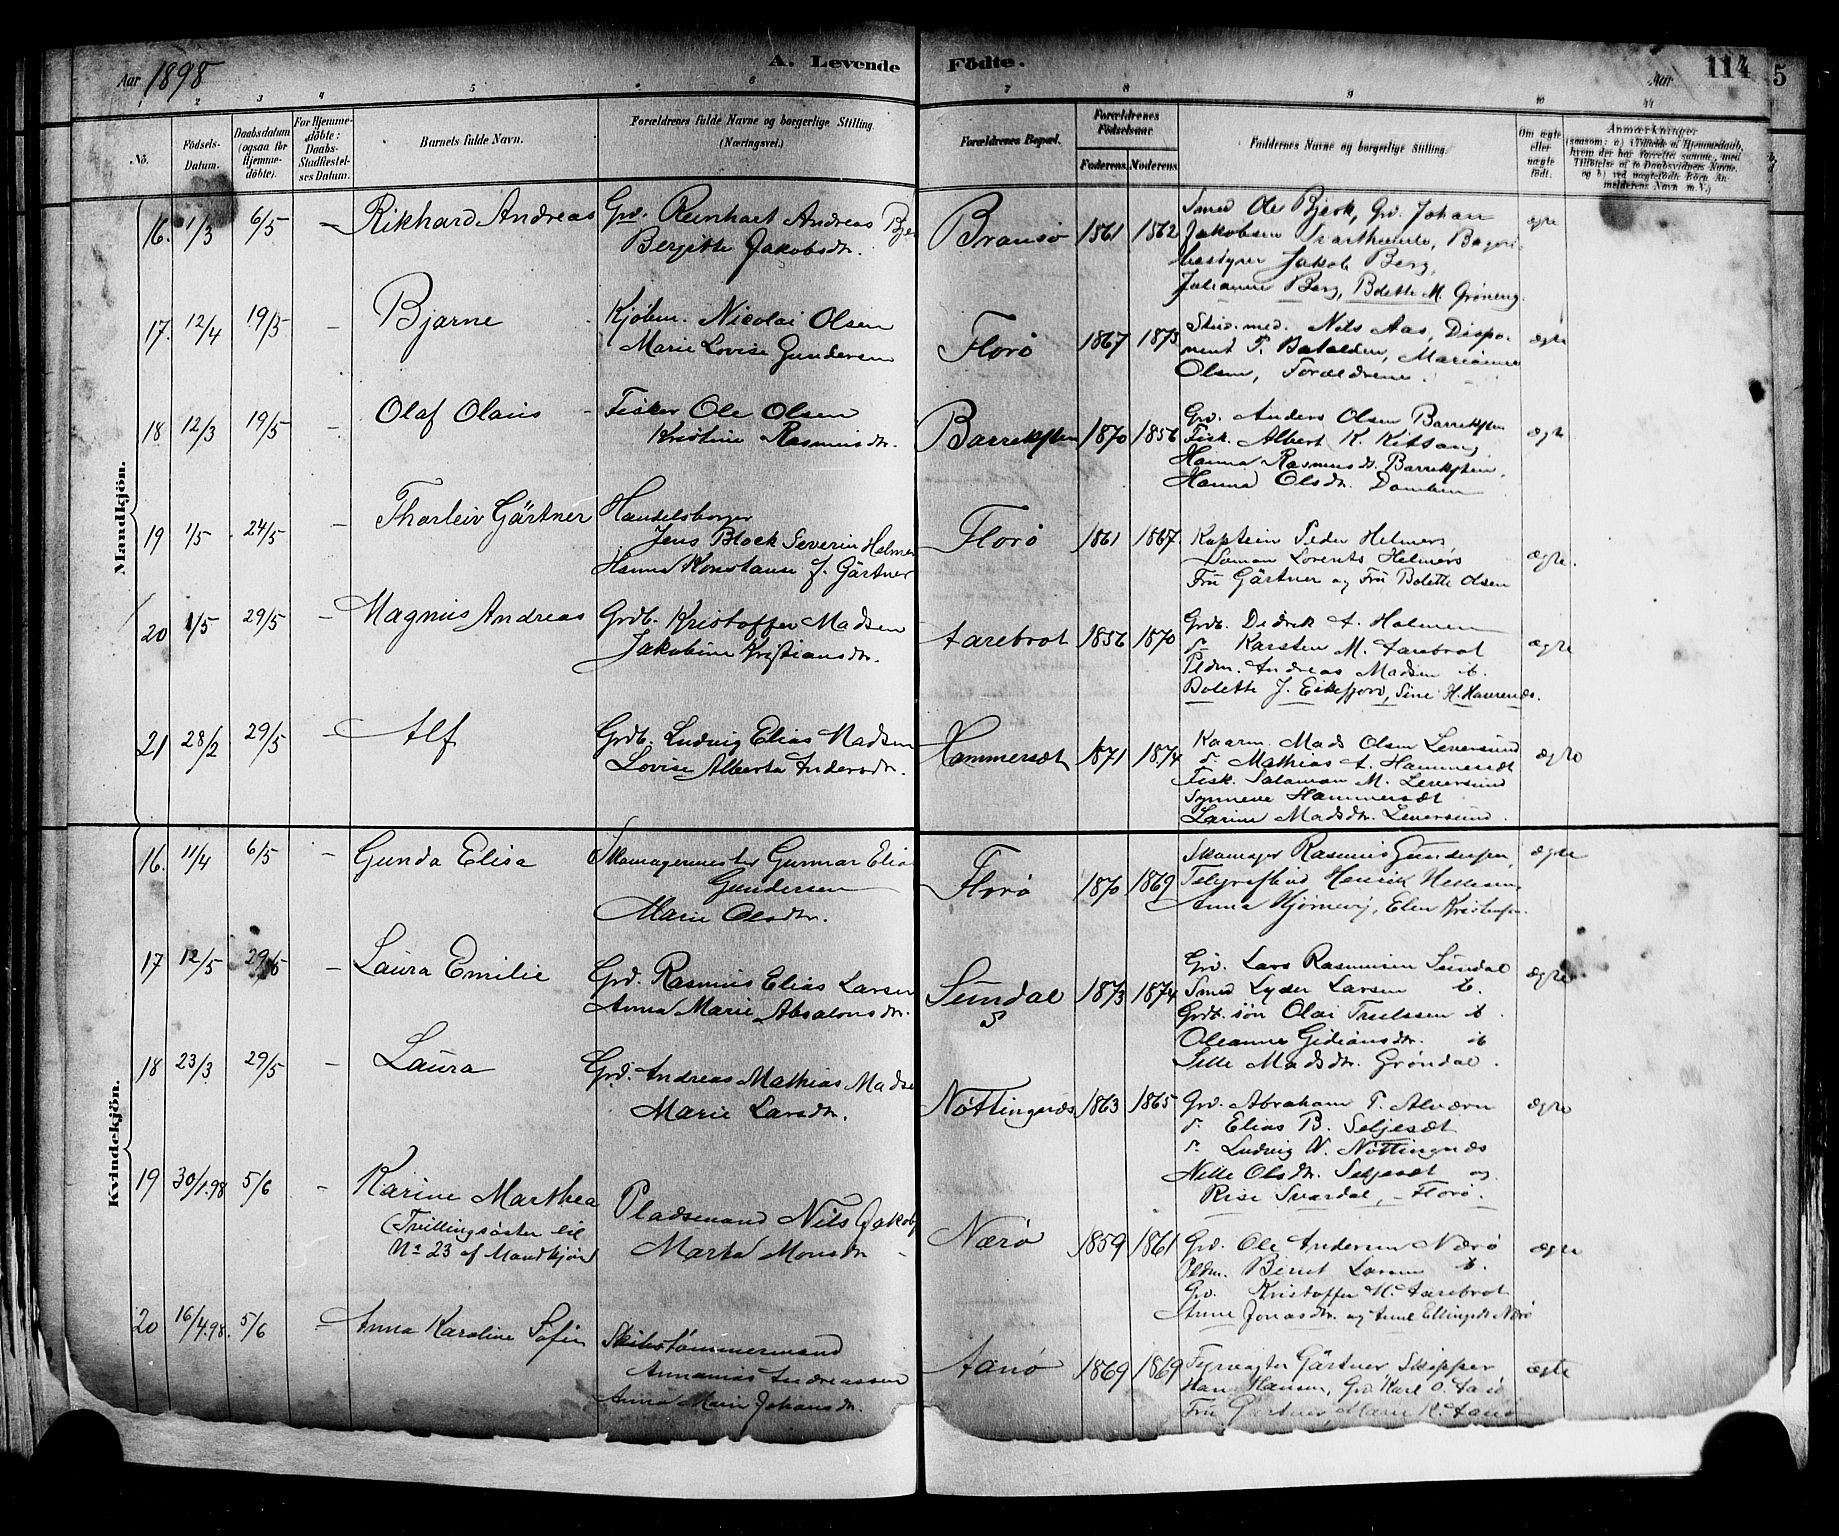 Aar 1898
A. Levende Födte.
Aar 114
5
1 2 3 4 5 6 7 8 9 10 11
No.
Födsels-Datum.
Daabsdatum (ogsaa for Hjemme-döbte).
For Hjemme-döbte: Daabs-Stadfæstel-ses Datum.
Barnets fulde Navn.
Forældrenes fulde Navne og borgerlige Stilling (Næringsvei.)
Forældrenes Bopæl.
Forældrenes Födselsaar
Faderens. Moderens.
Faddernes Navne og borgerlige Stilling.
Om ægte eller uægte födt.
Anmærkninger
Mandkjön.
16. 1/3 6/5 – Rikhard Andreas
Grd. Reinhart Andreas
Bergitte Jakobsdr.
Bransø 1861 1862
Smed Ole Bjerk, Grd. Johan
Jakobsen Svarthumle, Bageri
bestyrer Jakob Berg,
Johanne Berg, Bolette M. Grøneng.
ægte
17. 12/4 19/5 – Bjarne
Kjøbm. Nicolai Olsen
Marie Lovise Gundersen
Florø 1867 1873
Stud. med. Nils Aas, Dispo-
nent T. Batalden, Marianne
Olsen, Forældrene.
ægte
18 12/3 19/5 – Olaf Olaus
Fisker Ole Olsen
Kristine Rasmusdr.
Barreksten 1870 1856
Grd. Anders Olsen Barreksten
Fisk. Albert K. Kitsang
Hanna Rasmusdr. Barreksten,
Hanna Olsdr. Domben
ægte
19 1/5 24/5 – Thorleiv Gärtner
Handelsborger
Jens Block Severin Helmer
Hanna Konstanse J. Gärtner
Florø 1861 1867
Kaptein Peder Helmers
Doman Lorents Helmers
Frü Gärtner og Frü Bolette Olsen
ægte.
20 1/5 29/5 – Magnus Andreas
Grdb. Kristoffer Madsen
Jakobine Kristiansdr.
Aarebrot 1856 1870
Grdb. Didrik A. Holmen
Karsten M. Aarebrot
Pldm. Andreas Madsen ib.
Bolette J. Eikefjord, Sine H. Havrenes.
ægte
21 28/2 29/5 – Alf
Grdb. Ludvig Elias Madsen
Lovise Alberta Andersdr.
Hammersæt 1871 1874
Kaarm. Mads Olsen Leversund
Mathias A. Hammersæt
Fisk. Salamon M. Leversund
Synneve Hammersæt
Larine Madsdr. Leversund.
ægte
Kvindekjön.
16. 11/4 6/5 – Gunda Elisa
Skomagermester Gunnar Elias
Gundersen
Marie Olsdtr.
Florø 1870 1869
Skomager Rasmus Gundersen,
Telegrafbud Henrik
Anna Hjørnevij, Elen Kristensen.
ægte
17 12/5 29/5 – Laura Emilie
Grd. Rasmus Elias Larsen
Anna Marie Absalonsdr.
Sündal 1873 1874
Grd. Lars Rasmusen Sündal
Smed Lyder Larsen ib.
Grdb. søn Olai Truelssen ib
Oleanne Gidionsdr. ib
Lille Madsdr. Grøndal.
ægte
18 23/3 29/5 – Laura
Grd. Andreas Mathias Madse
Marie Larsdtr.
Nøttingnæs 1863 1865
Grd. Abraham T. Alværn
Elias B. Seljesæt
Ludvig N. Nøttingnæs
Nille Olsdtr. Seljesæt og
Rise Svardal, – Florø.
ægte
19 30/1.98 5/6 – Karine Marthea
(Tvillingsøster til
No 23 af Mandkjøn)
Pladsemand Nils Jakobs
Marta Monsdr.
Nærø 1859 1861
Grd. Ole Andersen Nærø
Pldm. Bernt Larsen ib.
Grd. Kristoffer M. Aarebrot
Anne Jonasdtr. og Anne Ellingsdr Nærø
ægte
20 16/4.98. 5/6 – Anna Karoline Sofie
Skibstømmermand
Annanias Andreassen
Anna Marie Johansdr.
Aanø 1869 1869
Fyrvogter Gärtner, Skipper
Hans Hansen, Grd Karl O. Aanø
Frü Gärtner, Marie K. Aanø
ægte